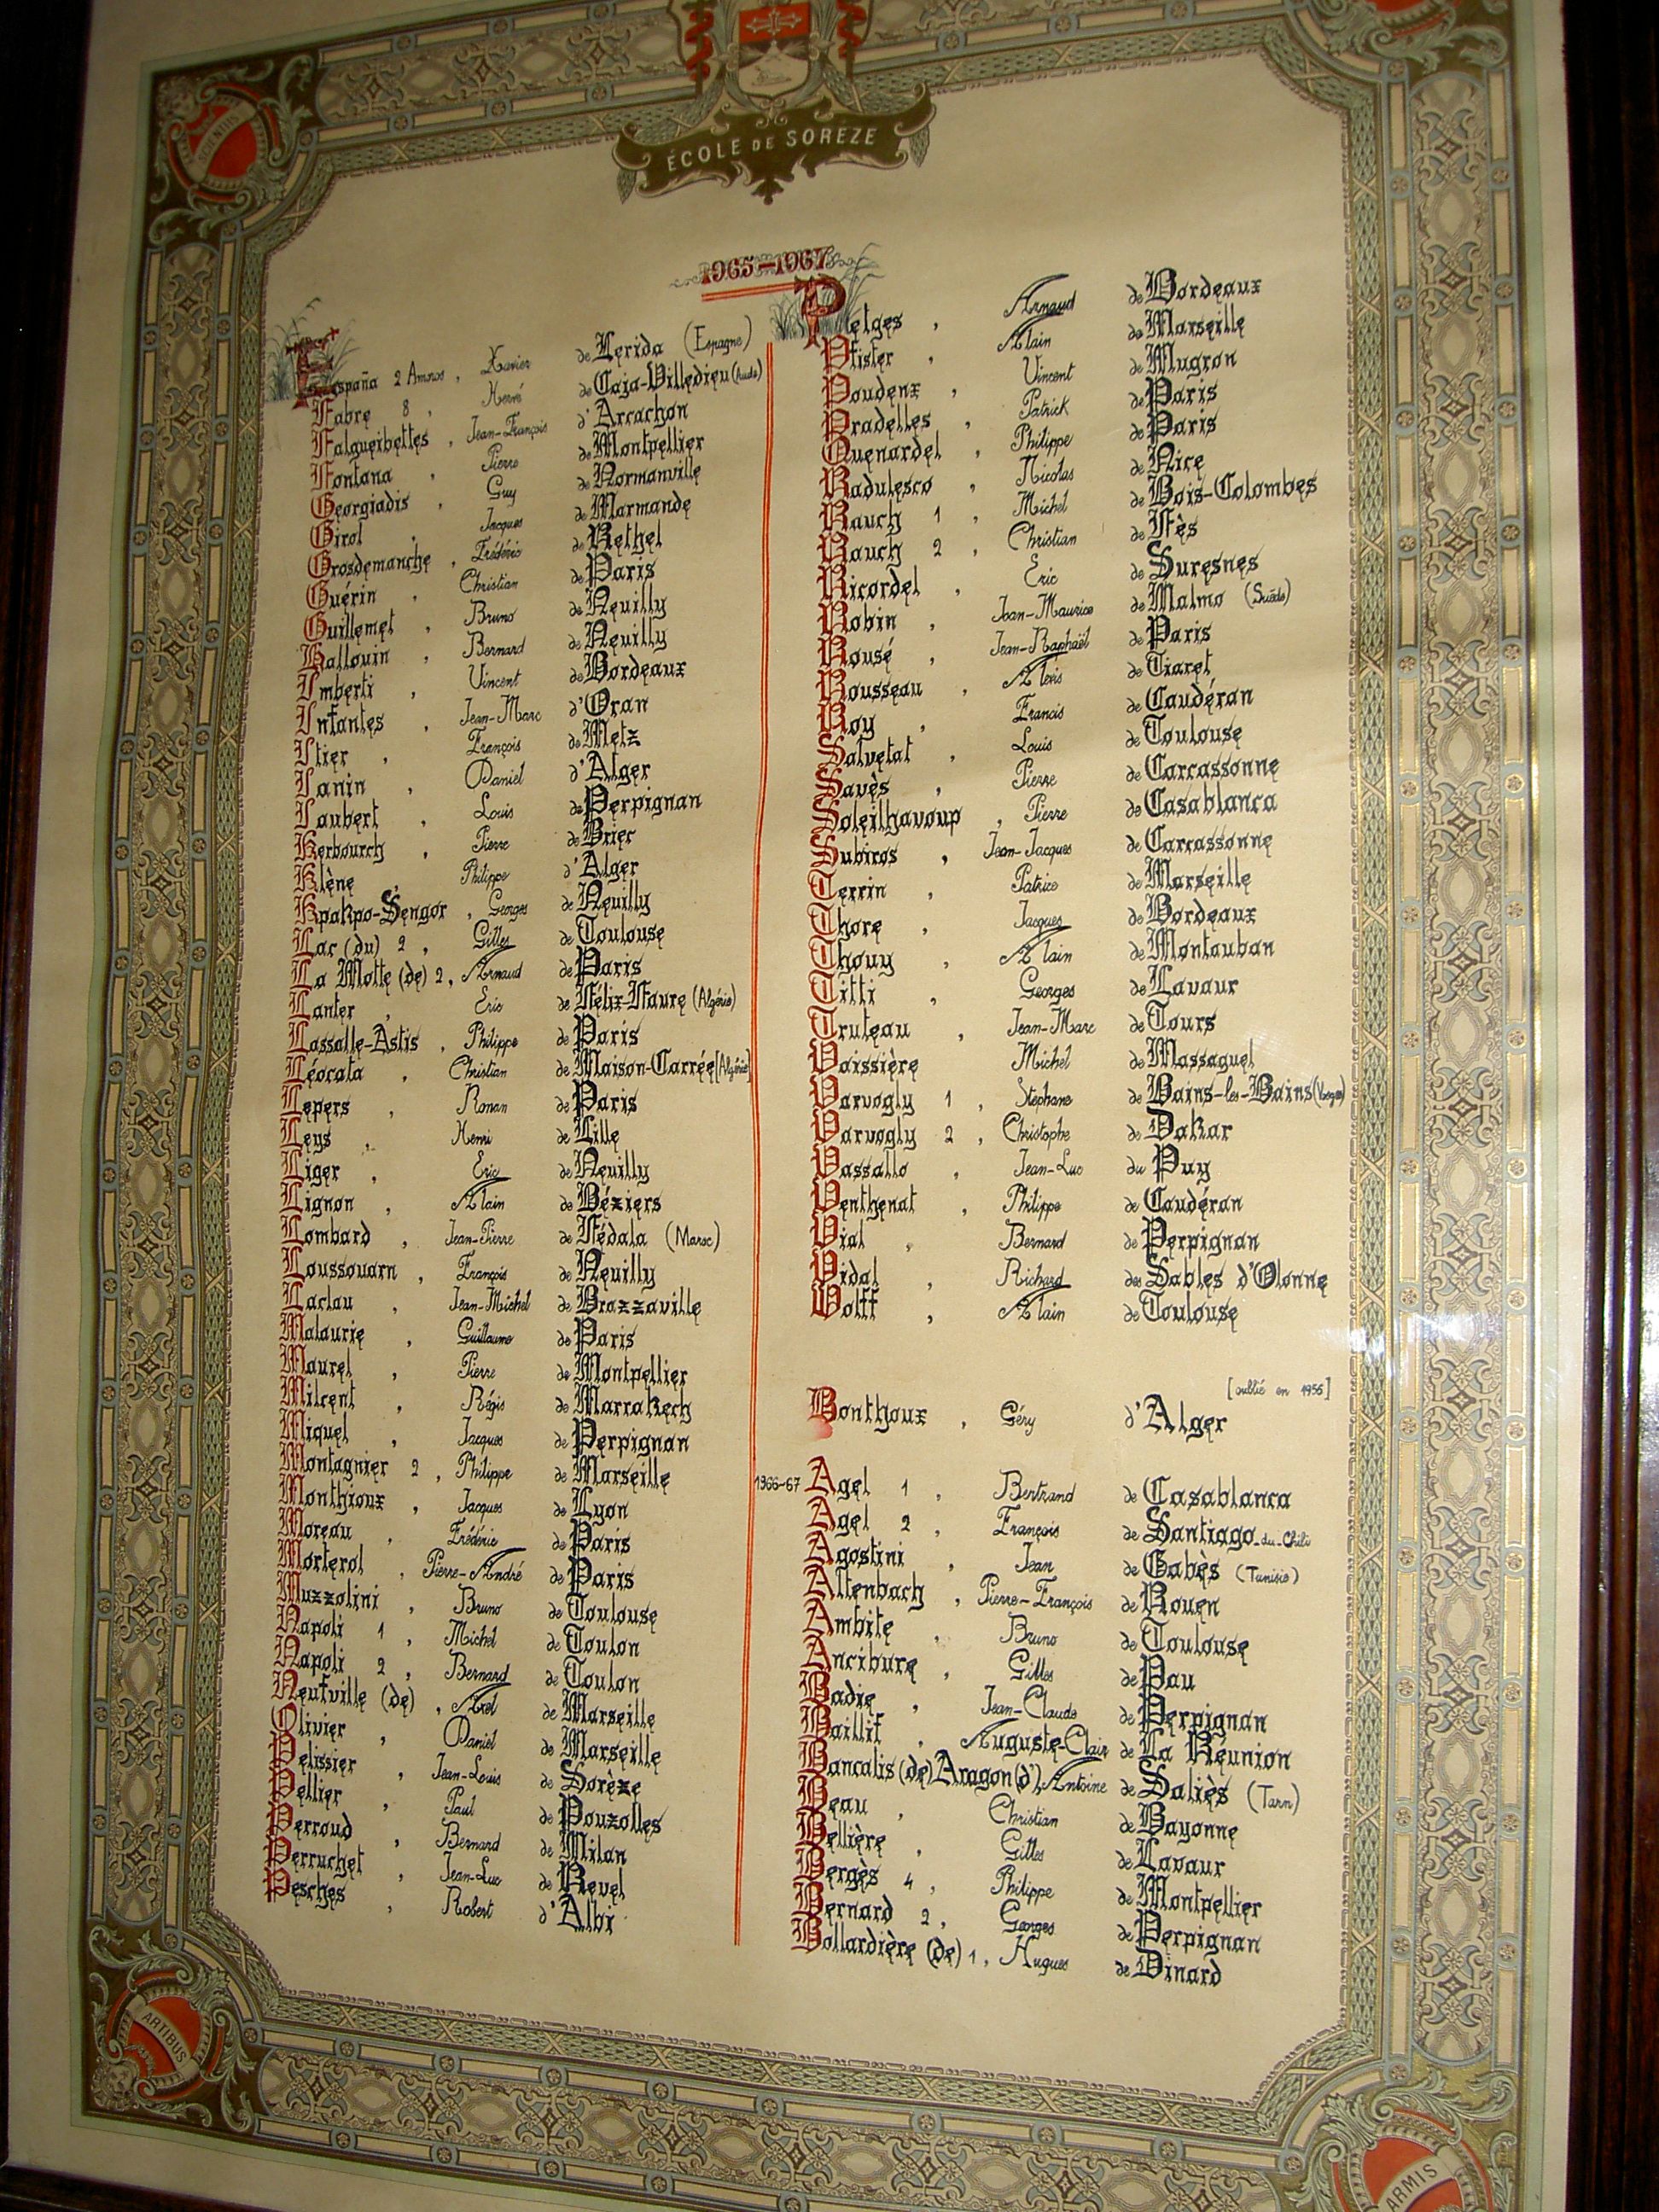 SCIENTIIS
ÉCOLE DE SORÈZE
1965-1967
España 2 Amoros, Xavier de Lerida (Espagne)
Fabre 8, Hervé de Caja-Villedieu (Aude)
Falgueirettes, Jean-François d'Arcachon
Fontana, Pierre de Montpellier
Georgiadis, Guy de Normanville
Girol, Jacques de Marmande
Grosdemanche, Frédéric de Rethel
Guérin, Christian de Paris
Guillemet, Bruno de Neuilly
Hallouin, Bernard de Neuilly
Imberti, Vincent de Bordeaux
Infantes, Jean-Marc d'Oran
Itier, François de Metz
Janin, Daniel d'Alger
Jaubert, Louis de Perpignan
Kerbourch, Pierre de Brier
Klène, Philippe d'Alger
Kpakpo-Sengor, Georges de Neuilly
Lac (du) 2, Gilles de Toulouse
La Motte (de) 2, Arnaud de Paris
Lanter, Eric de Félix-Faure (Algérie)
Lassalle-Astis, Philippe de Paris
Léocata, Christian de Maison-Carrée [Algérie]
Lepers, Ronan de Paris
Leys, Henri de Lille
Liger, Eric de Neuilly
Lignon, Alain de Béziers
Lombard, Jean-Pierre de Fédala (Maroc)
Loussouarn, François de Neuilly
Laclau, Jean-Michel de Brazzaville
Malaurie, Guillaume de Paris
Maurel, Pierre de Montpellier
Milcent, Régis de Marrakech
Miquel, Jacques de Perpignan
Montagnier 2, Philippe de Marseille
Monthioux, Jacques de Lyon
Moreau, Frédéric de Paris
Morterol, Pierre-André de Paris
Muzzolini, Bruno de Toulouse
Napoli 1, Michel de Toulon
Napoli 2, Bernard de Toulon
Neufville (de), Axel de Marseille
Olivier, Daniel de Marseille
Pelissier, Jean-Louis de Sorèze
Pellier, Paul de Pouzolles
Perroud, Bernard de Milan
Perruchet, Jean-Luc de Revel
Pesches, Robert d'Albi
Petges, Arnaud de Bordeaux
Pfister, Alain de Marseille
Poudenx, Vincent de Mugron
Pradelles, Patrick de Paris
Quenardel, Philippe de Paris
Radulesco, Nicolas de Nice
Rauch 1, Michel de Bois-Colombes
Rauch 2, Christian de Fès
Ricordel, Eric de Suresnes
Robin, Jean-Maurice de Malmo (Suède)
Rousé, Jean-Raphaël de Paris
Rousseau, Alexis de Tiaret
Roy, Francis de Caudéran
Salvetat, Louis de Toulouse
Savès, Pierre de Carcassonne
Soleilhavoup, Pierre de Casablanca
Subiros, Jean-Jacques de Carcassonne
Terrin, Patrice de Marseille
Thore, Jacques de Bordeaux
Thouy, Alain de Montauban
Titti, Georges de Lavaur
Truteau, Jean-Marc de Tours
Vaissière, Michel de Massaguel
Varvogly 1, Stéphane de Bains-les-Bains (Vosges)
Varvogly 2, Christophe de Dakar
Vassallo, Jean-Luc du Puy
Venthenat, Philippe de Caudéran
Vial, Bernard de Perpignan
Vidal, Richard des Sables d'Olonne
Wolff, Alain de Toulouse
[oublié en 1956]
Bonthoux, Géry d'Alger
1966-67 Agel 1, Bertrand de Casablanca
Agel 2, François de Santiago-du-Chili
Agostini, Jean de Gabès (Tunisie)
Altenbach, Pierre-François de Rouen
Ambite, Bruno de Toulouse
Anciburе, Gilles de Pau
Badie, Jean-Claude de Perpignan
Baillif, Auguste-Clair de La Réunion
Bancalis (de) Aragon (d'), Antoine de Saliès (Tarn)
Beau, Christian de Bayonne
Bellière, Gilles de Lavaur
Bergès 4, Philippe de Montpellier
Bernard 2, Georges de Perpignan
Bollardière (de) 1, Hugues de Dinard
ARTIBUS
ARMIS